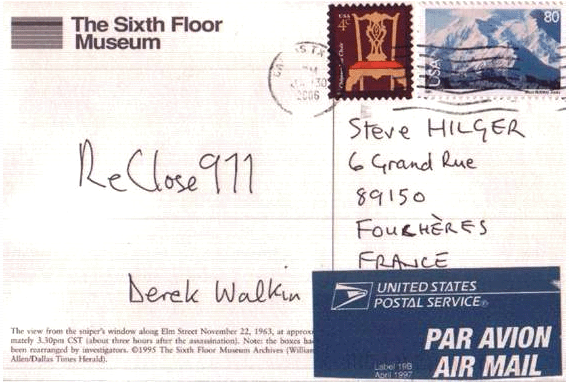 The Sixth Floor
Museum
USA
4¢
Chippendale Chair
USA
80
DALLAS TX
PM
30
2006
Steve HILGER
6 Grand Rue
89150
FOUCHÈRES
FRANCE
ReClose911
Derek Walkin
UNITED STATES
POSTAL SERVICE®
PAR AVION
AIR MAIL
Label 19B
April 1997
The view from the sniper's window along Elm Street November 22, 1963, at approxi-
mately 3.30pm CST (about three hours after the assassination). Note: the boxes ha
been rearranged by investigators. ©1995 The Sixth Floor Museum Archives (William
Allen/Dallas Times Herald).